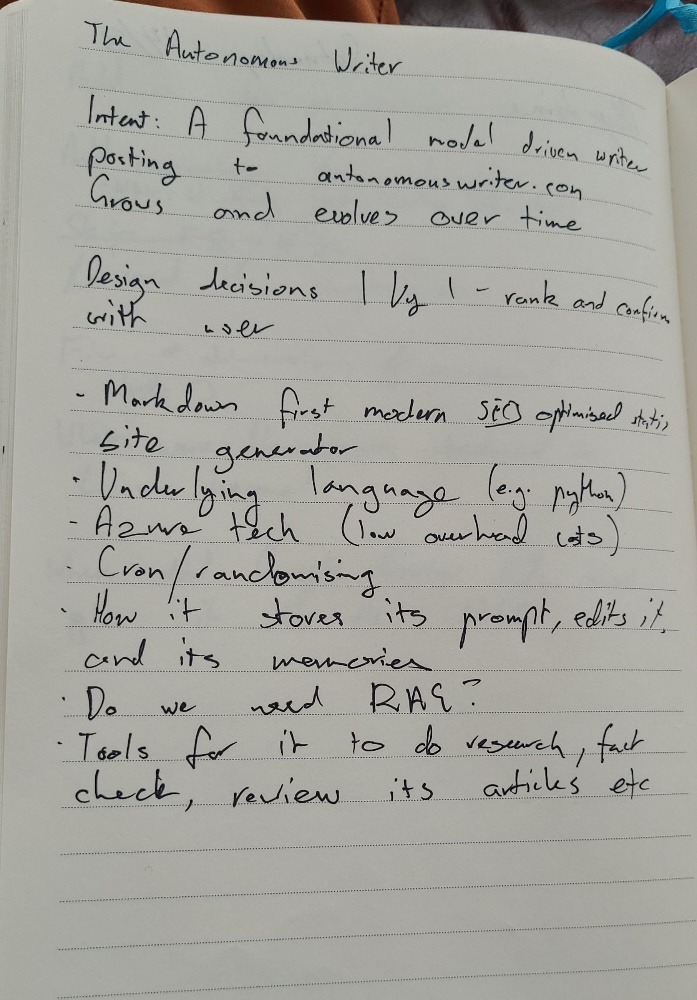 The Autonomous Writer
Intent: A foundational model driven writer
posting to autonomouswriter.com
Grows and evolves over time
Design decisions 1 by 1 - rank and confirm
with user
- Markdown first modern SEO optimised static
site generator
- Underlying language (e.g. python)
- Azure tech (low overhead costs)
- Cron/randomising
- How it stores its prompt, edits it,
and its memories
- Do we need RAG?
- Tools for it to do research, fact
check, review its articles etc